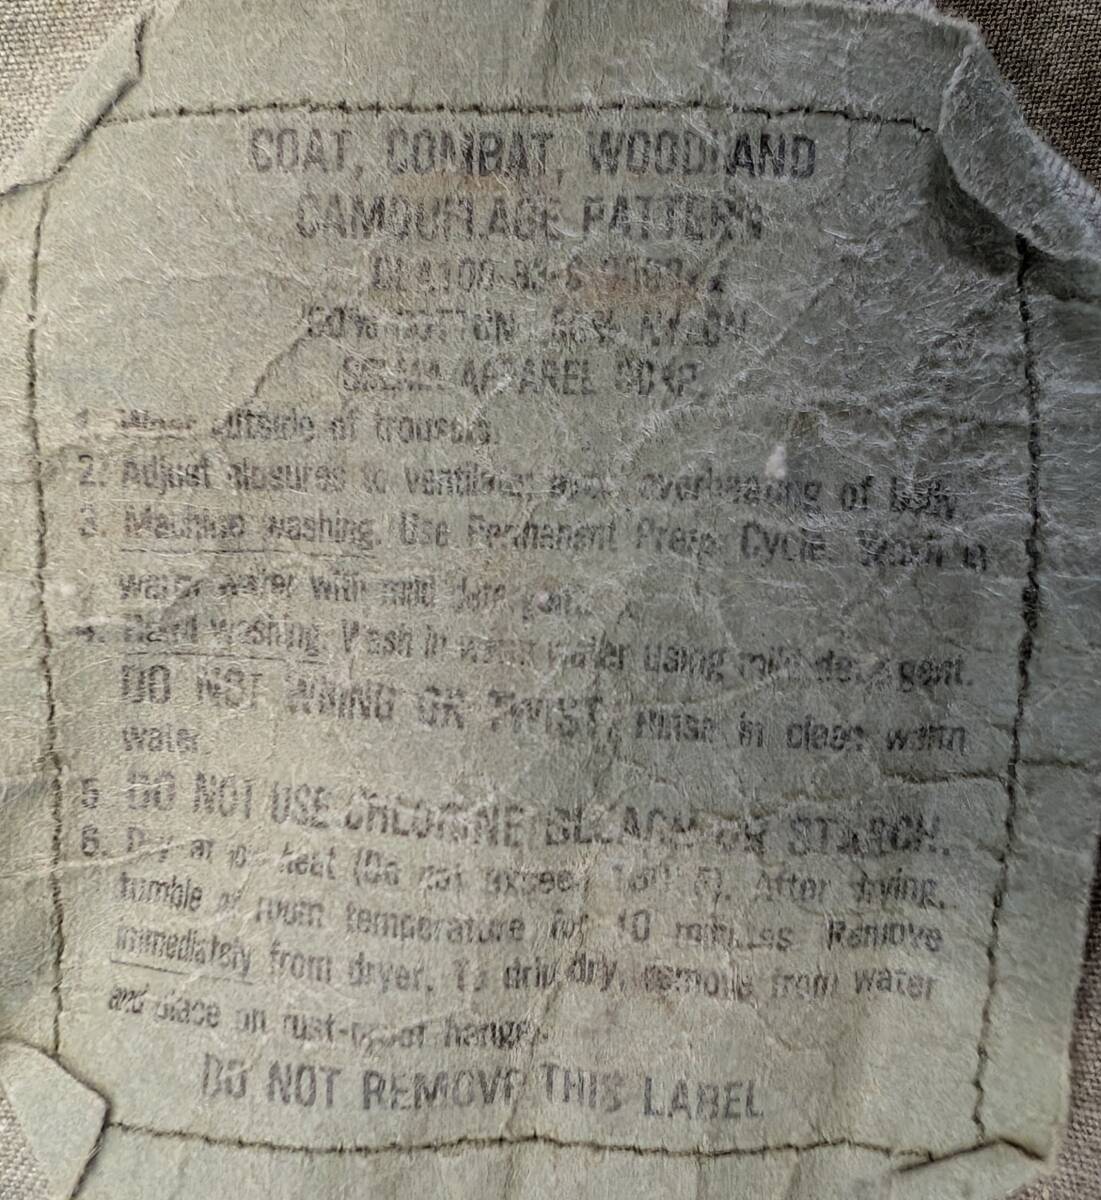 COAT, COMBAT, WOODLAND
CAMOUFLAGE PATTERN
50% COTTON 50% NYLON
SELMA APPAREL CORP.
1. Wear outside of trousers.
2. Adjust closures to ventilate; avoid overheating of body
3. Machine washing. Use Permanent Press Cycle. Wash in
warm water with mild detergent.
4. Hand washing. Wash in warm water using mild detergent.
DO NOT WRING OR TWIST. Rinse in clean warm
water.
5. DO NOT USE CHLORINE BLEACH OR STARCH.
6. Dry at heat (Do not exceed). After drying,
tumble at room temperature for 10 minutes. Remove
immediately from dryer. To drip dry, remove from water
and place on rust-proof hanger.
DO NOT REMOVE THIS LABEL